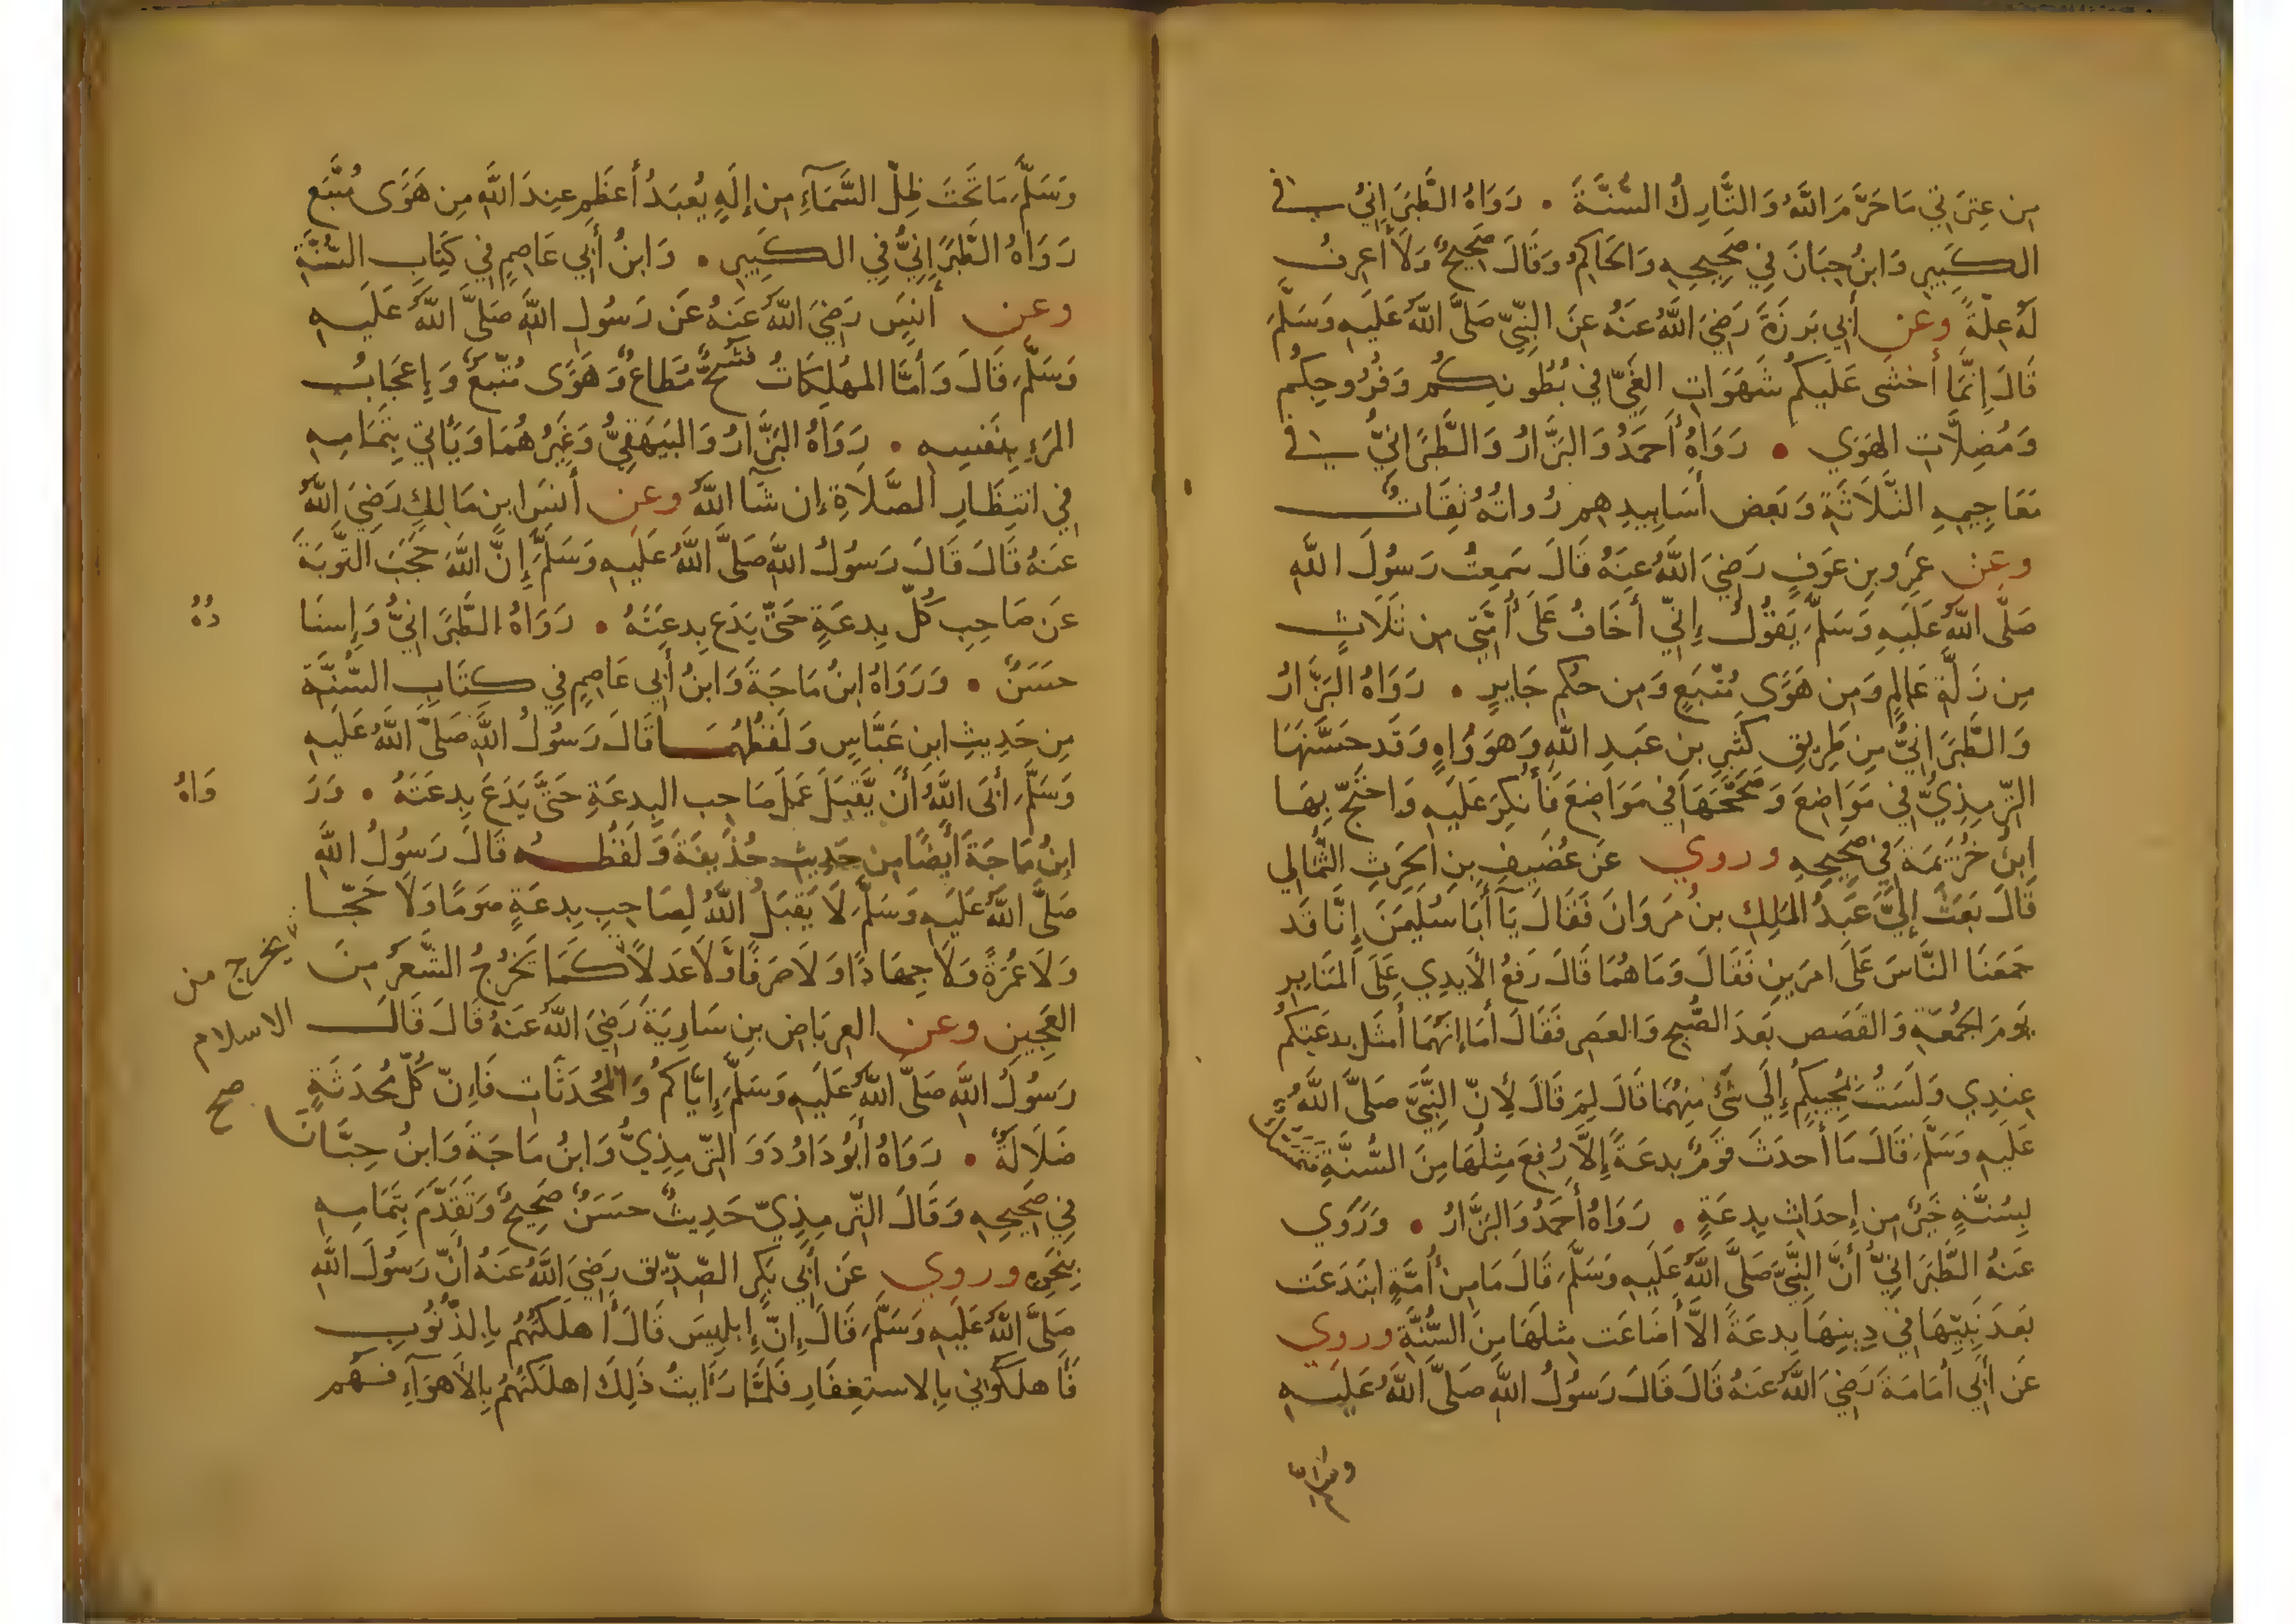 مِن عِترَتِي مَا حَرَّمَ اللَّهُ وَالتَّارِكُ السُّنَّةَ • رَوَاهُ الطَّبَرَانِيُّ في
الكَبِيرِ وَابنُ حِبَانَ فِي صَحِيحِهِ وَالحَاكِمُ وَقَالَ صَحِيحٌ وَلَا أَعرِفُ
لَهُ عِلَّةً وعن أَبِي بَرزَةَ رَضِيَ اللَّهُ عَنهُ عَنِ النَّبِيِّ صَلَّى اللَّهُ عَلَيهِ وَسَلَّمَ
قَالَ إِنَّمَا أَخشَى عَلَيكُم شَهَوَاتِ الغَيِّ فِي بُطُونِكُم وَفُرُوجِكُم
وَمُضِلَّاتِ الهَوَي • رَوَاهُ أَحمَدُ وَالبَزَّارُ وَالطَّبَرَانِيُّ في
مَعَاجِيمِهِ الثَّلَاثَةِ وَبَعض أَسَانِيدِهِم رُواتُهُ ثِقَاتٌ
وعن عَمرِو بنِ عَوفٍ رَضِيَ اللَّهُ عَنهُ قَالَ سَمِعتُ رَسُولَ اللَّهِ
صَلَّى اللَّهُ عَلَيهِ وَسَلَّمَ يَقُولُ إِنِّي أَخَافُ عَلَى أُمَّتِي مِن ثَلَاثٍ
مِن زَلَّةِ عَالِمٍ وَمِن هَوًى مُتَّبَعٍ وَمِن حُكمِ جَايِرٍ • رَوَاهُ البَزَّارُ
وَالطَّبَرَانِيُّ مِن طَرِيقِ كَثِيرِ بنِ عَبدِ اللَّهِ وَهوَ وَاهٍ وَقَد حَسَّنَهَا
التِّرمِذِيُّ فِي مَوَاضِعَ وَصَحَّحَهَا فِي مَوَاضِعَ فَأُنكِرَ عَلَيهِ وَاحتَجَّ بِهَا
ابنُ خُزَيمَةَ فِي صَحِيحِهِ وروي عَن غُضَيفِ بنِ الحَرِثِ الثُّمَالِي
قَالَ بَعَثَ إِلَيَّ عَبدُ المَلِكِ بنُ مَروَانَ فَقَالَ يَآ أَبَا سُلَيمَنَ إِنَّا قَد
جَمَعنَا النَّاسَ عَلَى امرَينِ فَقَالَ وَمَا هُمَا قَالَ رَفعُ الأَيدِي عَلَى المَنَابِرِ
يَومَ الجُمُعَةِ وَالقَصَص بَعدَ الصُّبحِ وَالعَصرِ فَقَالَ أَمَا إِنَّهُمَا أَمثَلُ بِدعَتِكُم
عِندِي وَلَستُ بِمُجِيبِكُم إِلَي شَيْءٍ مِنهُمَا قَالَ لِمَ قَالَ لِأَنَّ النَّبِيَّ صَلَّى اللَّهُ
عَلَيهِ وَسَلَّمَ قَالَ مَا أَحدَثَ قَومٌ بِدعَةً إِلَّا رُفِعَ مِثلُهَا مِنَ السُّنَّةِ فَتَمَسُّكٌ
بِسُنَّةٍ خَيرٌ مِن إِحدَاثِ بِدعَةٍ • رَوَاهُ أَحمَدُ وَالبَزَّارُ • وَرَوَي
عَنهُ الطَّبَرَانِيُّ أَنَّ النَّبِيَّ صَلَّى اللَّهُ عَلَيهِ وَسَلَّمَ قَالَ مَا مِن أُمَّةٍ ابتَدَعَت
بَعدَ نَبِيِّهَا فِي دِينِهَا بِدعَةً الَّا أَضَاعَت مِثلَهَا مِنَ السُّنَّةِ وروي
عَن أَبِي أُمَامَةَ رَضِيَ اللَّهُ عَنهُ قَالَ قَالَ رَسُولُ اللَّهِ صَلَّى اللَّهُ عَلَيهِ
وَسَلَّمَ مَا تَحتَ ظِلِّ السَّمَآءِ مِن إِلَهٍ يُعبَدُ أَعظَمِ عِندَ اللَّهِ مِن هَوًى مُتَّبَعٍ
رَوَاهُ الطَّبَرَانِيُّ فِي الكَبِيرِ • وَابنُ أَبِي عَاصِمٍ فِي كِتَابِ السُّنَّةِ
وعن أَنَسٍ رَضِيَ اللَّهُ عَنهُ عَن رَسُولِ اللَّهِ صَلَّى اللَّهُ عَلَيهِ
وَسَلَّمَ قَالَ وَأَمَّا المُهلِكَاتُ فَشُحٌّ مُطَاعٌ وَهَوًى مُتَّبَعٌ وَإِعجَابُ
المَرءِ بِنَفسِهِ • رَوَاهُ البَزَّارُ وَالبَيهَقِيُّ وَغَيرُهُمَا وَيَأتِي بِتَمَامِهِ
فِي انتِظَارِ الصَّلَاةِ إِن شَآ اللَّهُ وعن أَنَسِ ابنِ مَالِكٍ رَضِيَ اللَّهُ
عَنهُ قَالَ قَالَ رَسُولُ اللَّهِ صَلَّى اللَّهُ عَلَيهِ وَسَلَّمَ إِنَّ اللَّهَ حَجَبَ التَّوبَةَ
عَن صَاحِبِ كُلِّ بِدعَةٍ حَتَّى يَدَعَ بِدعَتَهُ • رَوَاهُ الطَّبَرَانِيُّ وَإِسنَا دُهُ
حَسَنٌ • وَرَوَاهُ ابنُ مَاجَةَ وَابنُ أَبِي عَاصِمٍ فِي كِتَابِ السُّنَّةِ
مِن حَدِيثِ ابنِ عَبَّاسٍ وَلَفظُهُمَا قَالَ رَسُولُ اللَّهِ صَلَّى اللَّهُ عَلَيهِ
وَسَلَّمَ أَبَى اللَّهُ أَن يَّقبَلَ عَمَلَ صَاحِبِ البِدعَةِ حَتَّى يَدَعَ بِدعَتَهُ • وَرَ وَاهُ
ابنُ مَاجَةَ أَيضًا مِن حَدِيثِ حُذَيفَةَ وَلَفظُهُ قَالَ رَسُولُ اللَّهِ
صَلَّى اللَّهُ عَلَيهِ وَسَلَّمَ لَا يَقبَلُ اللَّهُ لِصَاحِبِ بِدعَةٍ صَومًا وَلَا حَجًّا
وَلَا عُمرَةً وَلَا جِهَادًا وَلَا صَرفًا وَّلَا عَدلًا كَمَا تَخرُجُ الشَّعَرُ مِنَ
يخرج من
الاسلام
صح
العَجِينِ وعن العِربَاضِ بنِ سَارِيَةَ رَضِيَ اللَّهُ عَنهُ قَالَ قَالَ
رَسُولُ اللَّهِ صَلَّى اللَّهُ عَلَيهِ وَسَلَّمَ إِيَّاكُم وَالمُحدَثَاتِ فَإِنَّ كُلَّ مُحدَثَةٍ
ضَلَالَةٌ • رَوَاهُ أَبُو دَاوُدَ وَ التِّرمِذِيُّ وَابنُ مَاجَةَ وَابنُ حِبَّانَ
فِي صَحِيحِهِ وَقَالَ التِّرمِذِيّ حَدِيثٌ حَسَنٌ صَحِيحٌ وَتَقَدَّمَ بِتَمَامِهِ
بِنَحوِهِ وروي عَن أَبِي بَكرٍ الصِّدِّيقِ رَضِيَ اللَّهُ عَنهُ أَنَّ رَسُولَ اللَّهِ
صَلَّى اللَّهُ عَلَيهِ وَسَلَّمَ قَالَ إِنَّ إِبلِيسَ قَالَ أَهلَكتُهُم بِالذُّنُوبِ
فَأَهلَكُونِي بِالاستِغفَارِ فَلَمَّا رَأَيتُ ذَلِكَ اهلَكتُهُم بِالأَهوَآءِ فَهُم